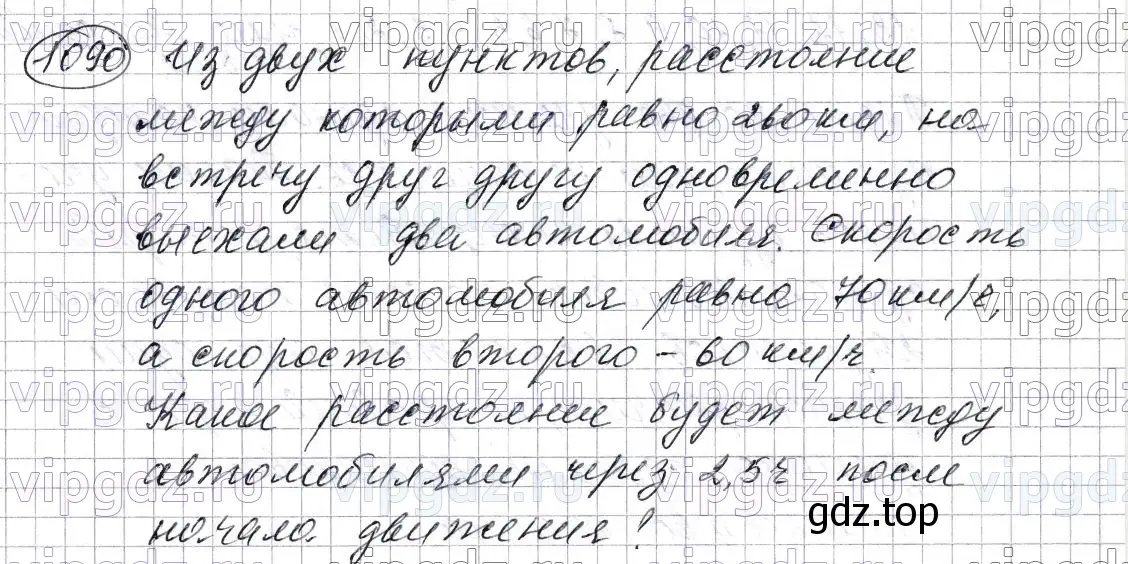 1090 Из двух пунктов, расстояние
между которыми равно 260 км, на-
встречу друг другу одновременно
выехали два автомобиля. Скорость
одного автомобиля равна 70 км/ч,
а скорость второго – 60 км/ч.
Какое расстояние будет между
автомобилями через 2,5 ч после
начала движения?
gdz.top